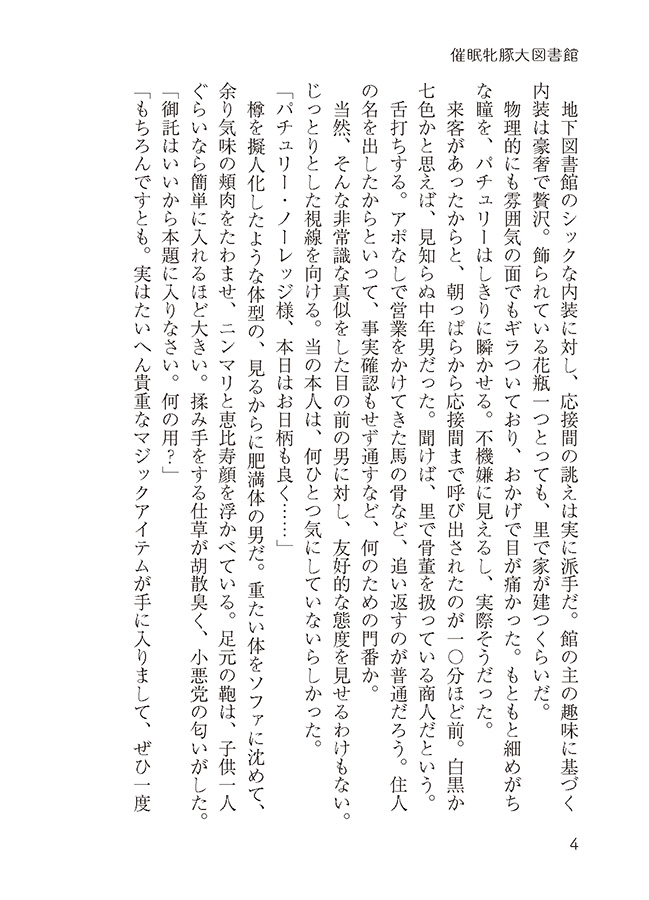 催眠牝豚大図書館
地下図書館のシックな内装に対し、応接間の誂えは実に派手だ。館の主の趣味に基づく
内装は豪奢で贅沢。飾られている花瓶一つとっても、里で家が建つくらいだ。
物理的にも雰囲気の面でもギラついており、おかげで目が痛かった。もともと細めがち
な瞳を、パチュリーはしきりに瞬かせる。不機嫌に見えるし、実際そうだった。
来客があったからと、朝っぱらから応接間まで呼び出されたのが一〇分ほど前。白黒か
七色かと思えば、見知らぬ中年男だった。聞けば、里で骨董を扱っている商人だという。
舌打ちする。アポなしで営業をかけてきた馬の骨など、追い返すのが普通だろう。住人
の名を出したからといって、事実確認もせず通すなど、何のための門番か。
当然、そんな非常識な真似をした目の前の男に対し、友好的な態度を見せるわけもない。
じっとりとした視線を向ける。当の本人は、何ひとつ気にしていないらしかった。
「パチュリー・ノーレッジ様、本日はお日柄も良く……」
樽を擬人化したような体型の、見るからに肥満体の男だ。重たい体をソファに沈めて、
余り気味の頬肉をたわませ、ニンマリと恵比寿顔を浮かべている。足元の鞄は、子供一人
ぐらいなら簡単に入れるほど大きい。揉み手をする仕草が胡散臭く、小悪党の匂いがした。
「御託はいいから本題に入りなさい。何の用？」
「もちろんですとも。実はたいへん貴重なマジックアイテムが手に入りまして、ぜひ一度
4